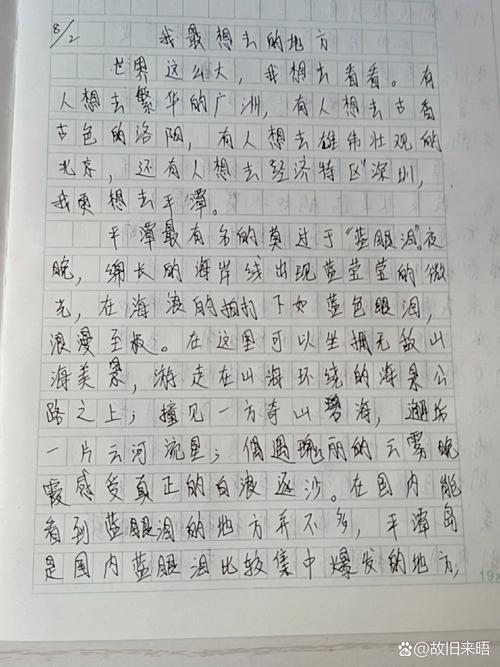 8/2 我最想去的地方
世界这么大，我想去看看。有
人想去繁华的广洲，有人想去古香
古色的洛阳，有人想去雄伟壮观的
北京，还有人想去经济特区"深圳，
我更想去平潭。
平潭最有名的莫过于"蓝眼泪"。夜
晚，绵长的海岸线出现蓝莹莹的微
光，在海浪的拍打下如蓝色眼泪，
浪漫至极。在这里可以坐拥无敌山
海美景，游走在山海环绕的海景公
路之上；撞见一方奇山碧海，邂逅
一片云河流星；偶遇瑰丽的云雾晚
霞感受真正的白浪逐沙。在国内能
看到蓝眼泪的地方并不多，平潭岛
是国内蓝眼泪比较集中爆发的地方，
19×
@故旧来晤